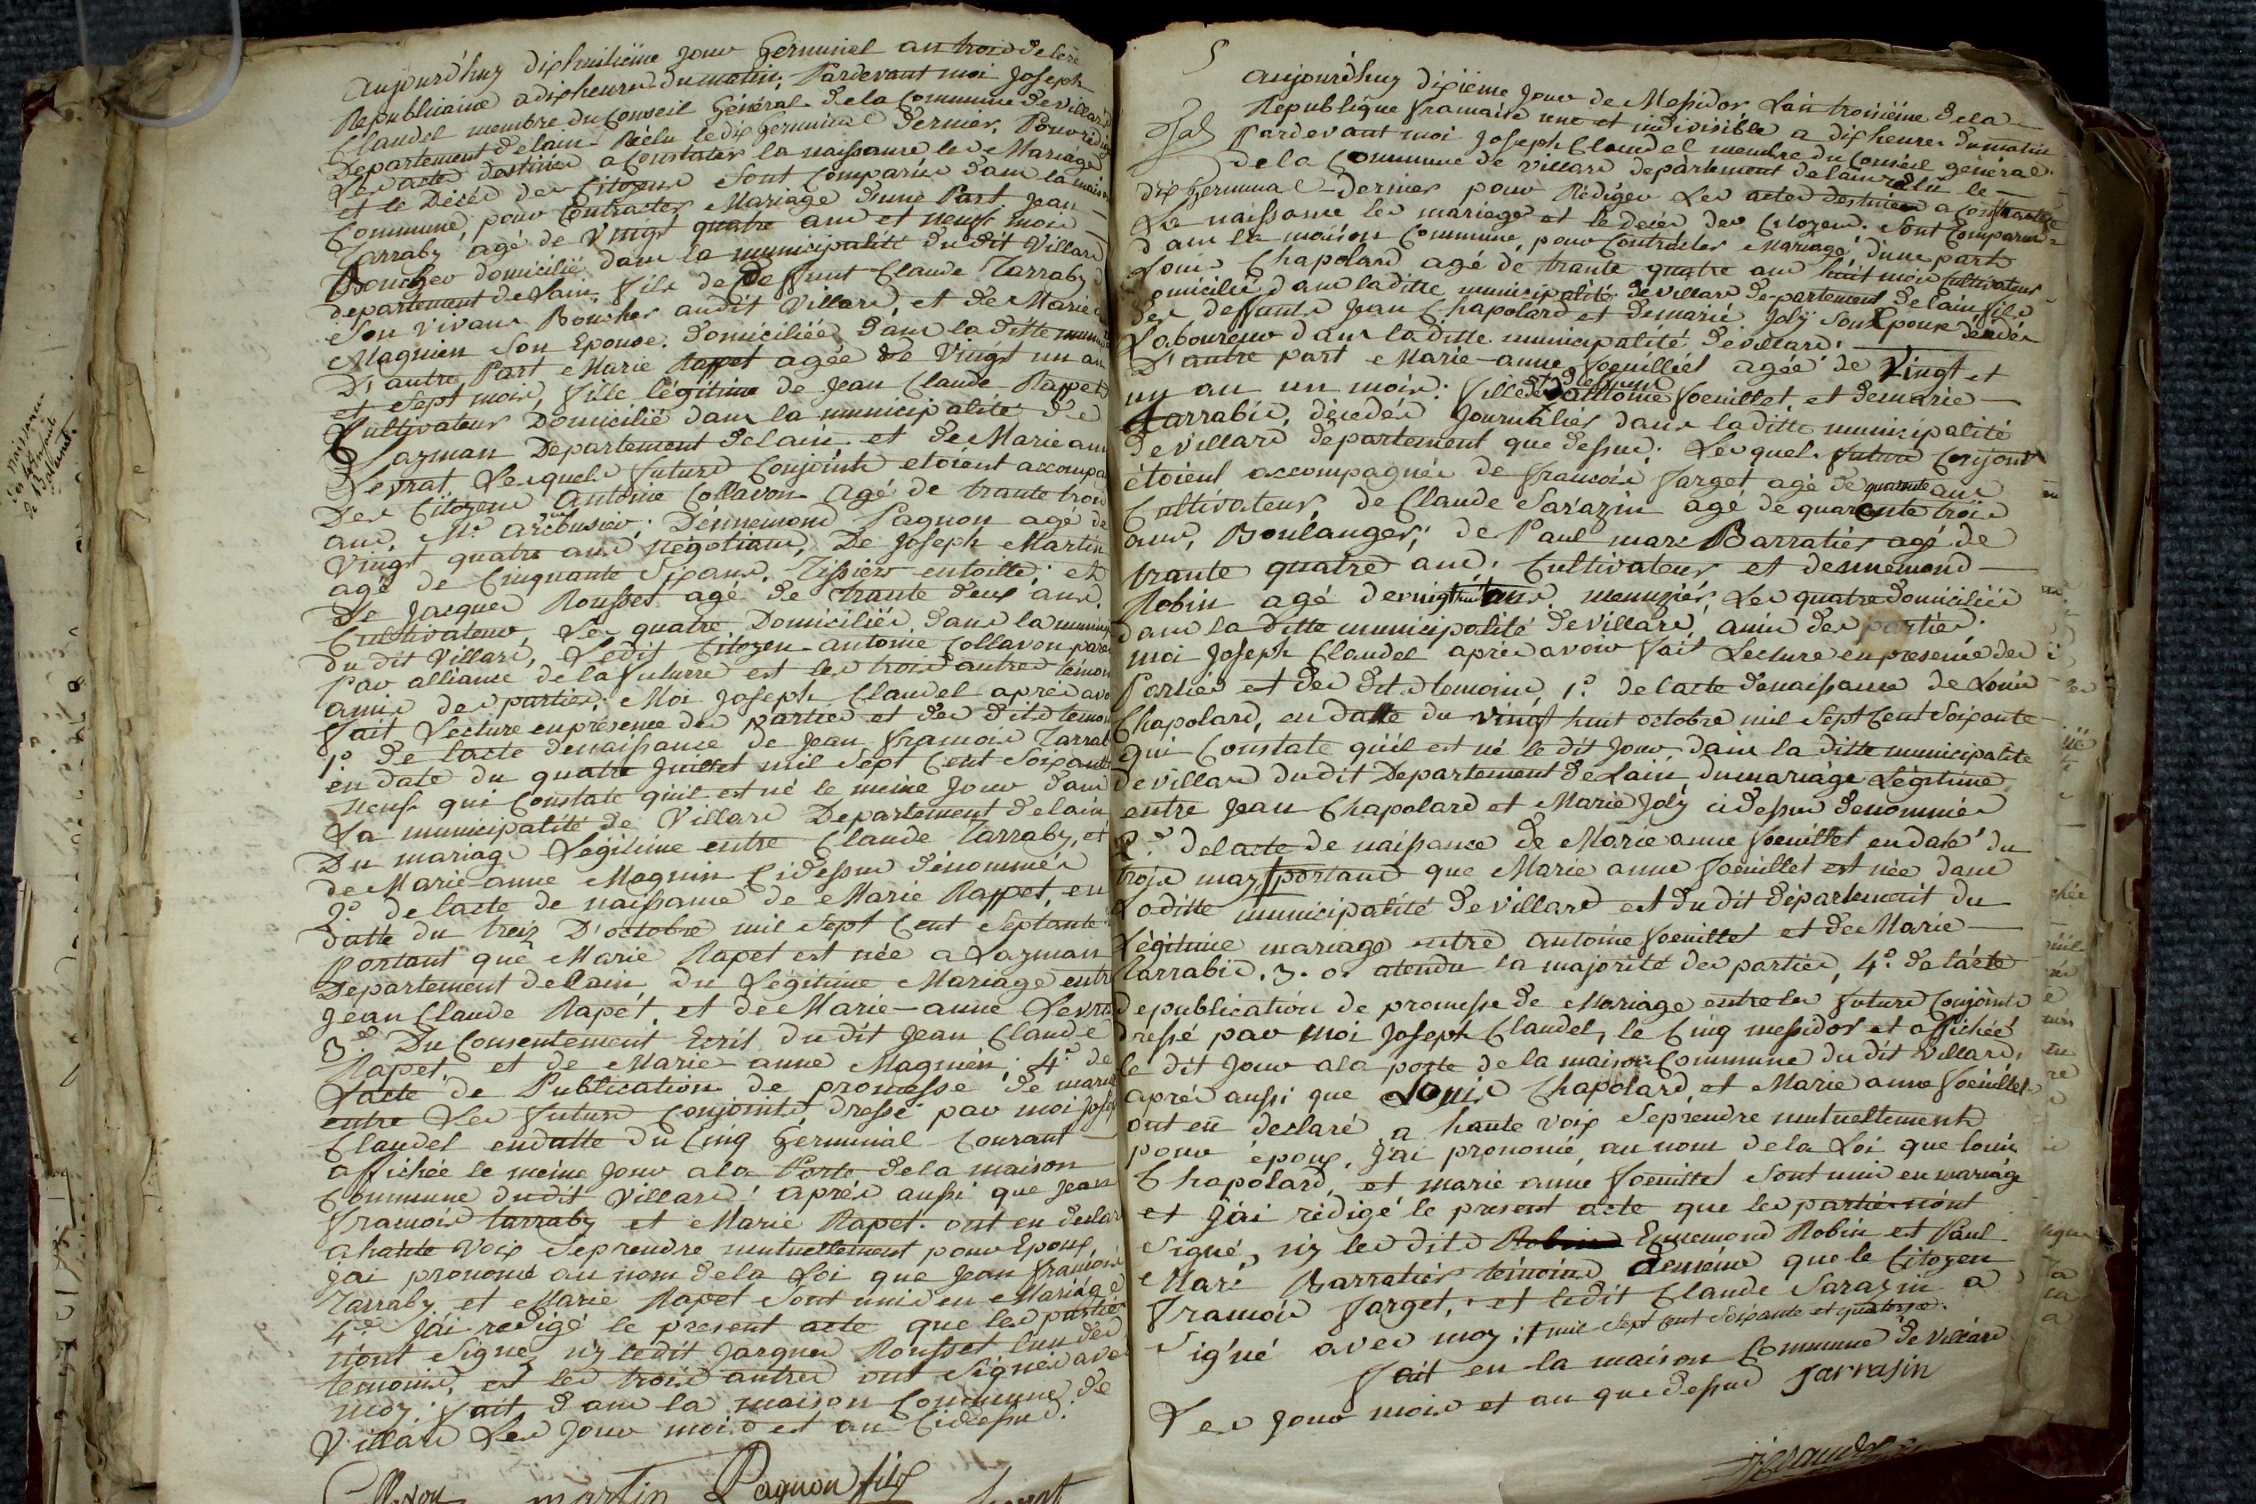 aujourdhuy dixhuitième jour Germinal an trois de lere
Republicaine a dix heures du matin; Pardevant moi Joseph
Claudel membre du Conseil Général de la Commune de villard
Departement de lain Réélu le dix Germinal dernier, Pour rédiger
Les actes destinés a Constater la naissance les Mariages
et le Décés des Citoyens Sont Comparus dans la maison
Commune, pour Contracter Mariage d'une Part Jean
Tarraby agé de Vingt quatre ans et neuf mois
Boucher domicilié dans la municipalité du dit Villard
departement de Lain, fils de Deffunt Claude Tarraby
Son vivant Boucher audit Villard, et de Marie
Magnien Son Epouse. domiciliée dans la ditte
D'autre Part Marie Rappet agée de Vingt un an
et Sept mois, fille légitime de Jean Claude Rappet
Cultivateur Domicilié dans la municipalité de
Lazman Departement de lain et de Marie anne
Levrat Lesquels futurs Conjoints etoient accompa
Des Citoyens Antoine Collavon agé de trante trois
ans, Mtre arcbusier; Dénnemond Pagnon agé de
Vingt quatre ans Négotiant, De Joseph Martin
agé de Cinquante Six ans, Tissier entoille; et
De Jacques Rousset agé de trante deux ans
Cultivateur, Les quatre Domiciliés dans la
du dit Villard, Ledit Citoyen antoine Collavon
Par alliance de la future et les trois autres
amis des parties; Moi Joseph Claudel aprés
fait Lecture en presence des parties et des dits
1º De lacte denaissance de Jean françois
en date du quatre Juillet mil Sept Cent Soixante
neuf qui Constate quil est né le meme Jour dans
La municipalité de Villard Departement de lain
Du mariage Legitime entre Claude Tarraby, et
de Marie-anne Magnin Cidessus dénommés
2º de lacte de naissance de Marie Rappet, en
datte du treiz D'octobre mil Sept Cent Septante
portant que Marie Rapet est née a Lazman
Departement de lain du Légitime Mariage
Jean Claude Rapet, et de Marie-anne
3º Du Consentement Ecrit du dit Jean Claude
Rapet, et de Marie anne Magnien; 4º de
Lacte de Publication de promesse de
entre Les futurs Conjoints, dressé par moi
Claudel endatte du Cinq Germinal Courant
affichée le meme jour a la Porte de la maison
Commune dudit Villard; aprés aussi que Jean
françois tarraby et Marie Rapet ont eu
a haute voix Seprendre mutuellement pour Epoux,
jai prononcé au nom de la Loi que Jean
Tarraby et Marie Rapet Sont unis en Mariage
4º Jai redigé le present acte que les parties
n'ont Signé, n'y ledit Jacques Rousset l'un des
temoins, et les trois autres ont Signés
moy; fait dans la maison Commune de
Villard Les Jour mois et an Cidessus.
martin Pagnon fils
5
aujourdhuy dixième jour de Messidor Lan troisième de la
Republique francaise une et indivisible a dix heures du matin
Pardevant moi Joseph Claudel membre du Conseil général
de la Commune de Villard departement de lain réélu le
dix Germinal dernier pour Rédiger Les actes destinés a Constater
La naissance les mariages et le decés des Citoyens. Sont Comparus
dans la maison Commune, pour Contracter Mariage, d'une part
Louis Chapolard agé de trante quatre ans huit mois Cultivateur
domicilié dans laditte municipalité de villard departement de lain fils
des deffunts Jean Chapolard et de marie Joly Son Epouse décédés
Laboureur dans laditte municipalité de villard;
D'autre part Marie-anne foeuillet agée de Vingt et
un an un mois. fille de antoine foeuillet et de marie
Tarrabie, décédés journaliés dans laditte municipalité
de villard departement que dessus. Lesquels futurs Conjoint
étoient accompagnés de francois farget agé de quarante ans
Cultivateur, de Claude Sarazin agé de quarante trois
ans, Boulanger; de Paul marc Barratier agé de
trante quatre ans. Cultivateur et dennemond
Robin agé de vingt huit ans menuzier, Les quatre domiciliés
dans la ditte municipalité de villard, amis des parties.
moi Joseph Claudel aprés avoir fait Lecture en presence des
Parties et des dits temoins, 1º de lacte denaissance de Louis
Chapolard, en datte du vingt huit octobre mil Sept Cent Soixante
qui Constate quil est né le dit Jour dans la ditte municipalité
de villard dudit Departement de Lain du mariage Légitime
entre Jean Chapolard et Marie Joly cidessus denommés
2º de lacte de naissance de Marie anne foeuillet en date du
trois may portant que Marie anne foeuillet est née dans
Laditte municipalité de villard et du dit departement du
Légitime mariage entre antoine foeuillet et de Marie
tarrabie. 3º atendu la majorité des parties, 4º de lacte
depublication de promesse de Mariage entre les futurs Conjoints
dressé par moi Joseph Claudel, le Cinq messidor et affichée
le dit jour a la porte de la maison Commune du dit villard,
aprés aussi que Louis Chapolard, et Marie anne foeuillet
ont eû declaré a haute voix Seprendre mutuellement
pour époux, j'ai prononcé, au nom de la Loi que louis
Chapolard, et marie anne foeuillet Sont unis en mariage
et j'ai rédigé le present acte que les parties n'ont
Signé, n'y les dits Ennemond Robin et Paul
Marc Barratier temoins de même que le Citoyen
francois farget, et ledit Claude Sarazin a
Signé avec moy; mil Sept Cent Soixante et quatorze.
fait en la maison Commune de Villard
Les Jour mois et an que dessus Sarrasin